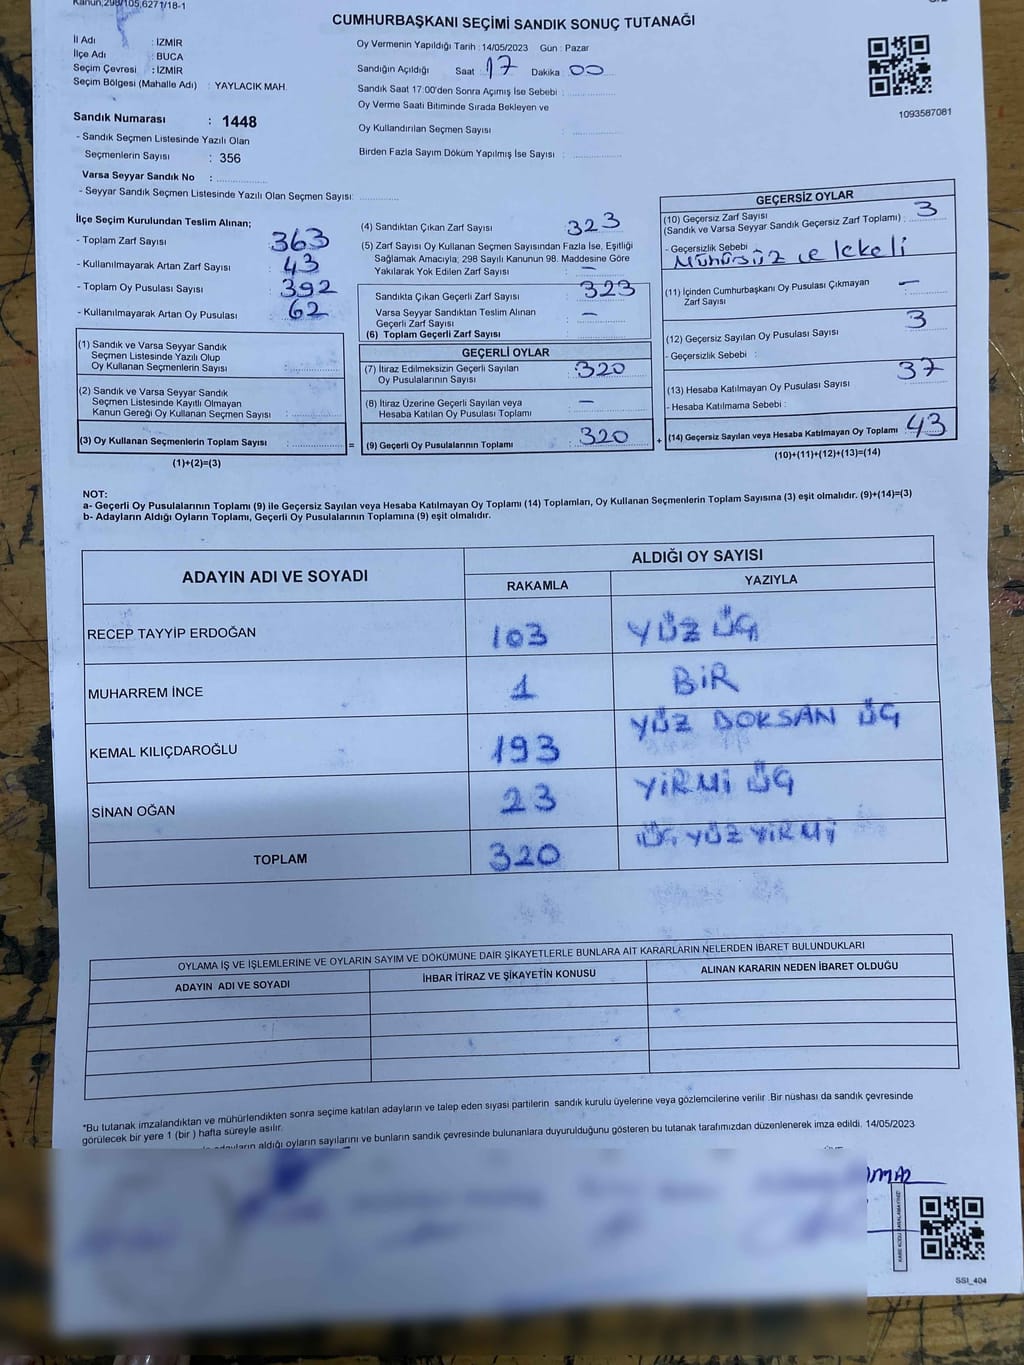 Kanun,298/105,6271/18-1
CUMHURBAŞKANI SEÇİMİ SANDIK SONUÇ TUTANAĞI
İl Adı : İZMİR
İlçe Adı : BUCA
Seçim Çevresi : İZMİR
Seçim Bölgesi (Mahalle Adı) : YAYLACIK MAH.
Oy Vermenin Yapıldığı Tarih : 14/05/2023 Gün : Pazar
Sandığın Açıldığı Saat : 17 Dakika : 00
Sandık Saat 17:00'den Sonra Açımış İse Sebebi :
Oy Verme Saati Bitiminde Sırada Bekleyen ve
Oy Kullandırılan Seçmen Sayısı :
Birden Fazla Sayım Döküm Yapılmış İse Sayısı :
1093587081
Sandık Numarası : 1448
- Sandık Seçmen Listesinde Yazılı Olan
Seçmenlerin Sayısı : 356
Varsa Seyyar Sandık No :
- Seyyar Sandık Seçmen Listesinde Yazılı Olan Seçmen Sayısı:
İlçe Seçim Kurulundan Teslim Alınan;
- Toplam Zarf Sayısı : 363
- Kullanılmayarak Artan Zarf Sayısı : 43
- Toplam Oy Pusulası Sayısı : 392
- Kullanılmayarak Artan Oy Pusulası : 62
(1) Sandık ve Varsa Seyyar Sandık
Seçmen Listesinde Yazılı Olup
Oy Kullanan Seçmenlerin Sayısı :
(2) Sandık ve Varsa Seyyar Sandık
Seçmen Listesinde Kayıtlı Olmayan
Kanun Gereği Oy Kullanan Seçmen Sayısı :
(3) Oy Kullanan Seçmenlerin Toplam Sayısı : =
(1)+(2)=(3)
(4) Sandıktan Çıkan Zarf Sayısı : 323
(5) Zarf Sayısı Oy Kullanan Seçmen Sayısından Fazla İse, Eşitliği
Sağlamak Amacıyla; 298 Sayılı Kanunun 98. Maddesine Göre
Yakılarak Yok Edilen Zarf Sayısı : —
Sandıkta Çıkan Geçerli Zarf Sayısı : 323
Varsa Seyyar Sandıktan Teslim Alınan
Geçerli Zarf Sayısı : —
(6) Toplam Geçerli Zarf Sayısı :
GEÇERLİ OYLAR
(7) İtiraz Edilmeksizin Geçerli Sayılan
Oy Pusulalarının Sayısı : 320
(8) İtiraz Üzerine Geçerli Sayılan veya
Hesaba Katılan Oy Pusulası Toplamı : —
(9) Geçerli Oy Pusulalarının Toplamı : 320 +
GEÇERSİZ OYLAR
(10) Geçersiz Zarf Sayısı
(Sandık ve Varsa Seyyar Sandık Geçersiz Zarf Toplamı) : 3
- Geçersizlik Sebebi
Mühürsüz ve lekeli
(11) İçinden Cumhurbaşkanı Oy Pusulası Çıkmayan
Zarf Sayısı : —
(12) Geçersiz Sayılan Oy Pusulası Sayısı : 3
- Geçersizlik Sebebi :
(13) Hesaba Katılmayan Oy Pusulası Sayısı : 37
- Hesaba Katılmama Sebebi :
(14) Geçersiz Sayılan veya Hesaba Katılmayan Oy Toplamı : 43
(10)+(11)+(12)+(13)=(14)
NOT:
a- Geçerli Oy Pusulalarının Toplamı (9) ile Geçersiz Sayılan veya Hesaba Katılmayan Oy Toplamı (14) Toplamları, Oy Kullanan Seçmenlerin Toplam Sayısına (3) eşit olmalıdır. (9)+(14)=(3)
b- Adayların Aldığı Oyların Toplamı, Geçerli Oy Pusulalarının Toplamına (9) eşit olmalıdır.
ADAYIN ADI VE SOYADI
ALDIĞI OY SAYISI
RAKAMLA YAZIYLA
RECEP TAYYİP ERDOĞAN 103 YÜZ ÜÇ
MUHARREM İNCE 1 BİR
KEMAL KILIÇDAROĞLU 193 YÜZ DOKSAN ÜÇ
SİNAN OĞAN 23 YİRMİ ÜÇ
TOPLAM 320 ÜÇ YÜZ YİRMİ
OYLAMA İŞ VE İŞLEMLERİNE VE OYLARIN SAYIM VE DÖKÜMÜNE DAİR ŞİKAYETLERLE BUNLARA AİT KARARLARIN NELERDEN İBARET BULUNDUKLARI
ADAYIN ADI VE SOYADI İHBAR İTİRAZ VE ŞİKAYETİN KONUSU ALINAN KARARIN NEDEN İBARET OLDUĞU
*Bu tutanak imzalandıktan ve mühürlendikten sonra seçime katılan adayların ve talep eden siyasi partilerin sandık kurulu üyelerine veya gözlemcilerine verilir .Bir nüshası da sandık çevresinde
görülecek bir yere 1 (bir ) hafta süreyle asılır.
aldığı oyların sayılarını ve bunların sandık çevresinde bulunanlara duyurulduğunu gösteren bu tutanak tarafımızdan düzenlenerek imza edildi. 14/05/2023
SSI_404